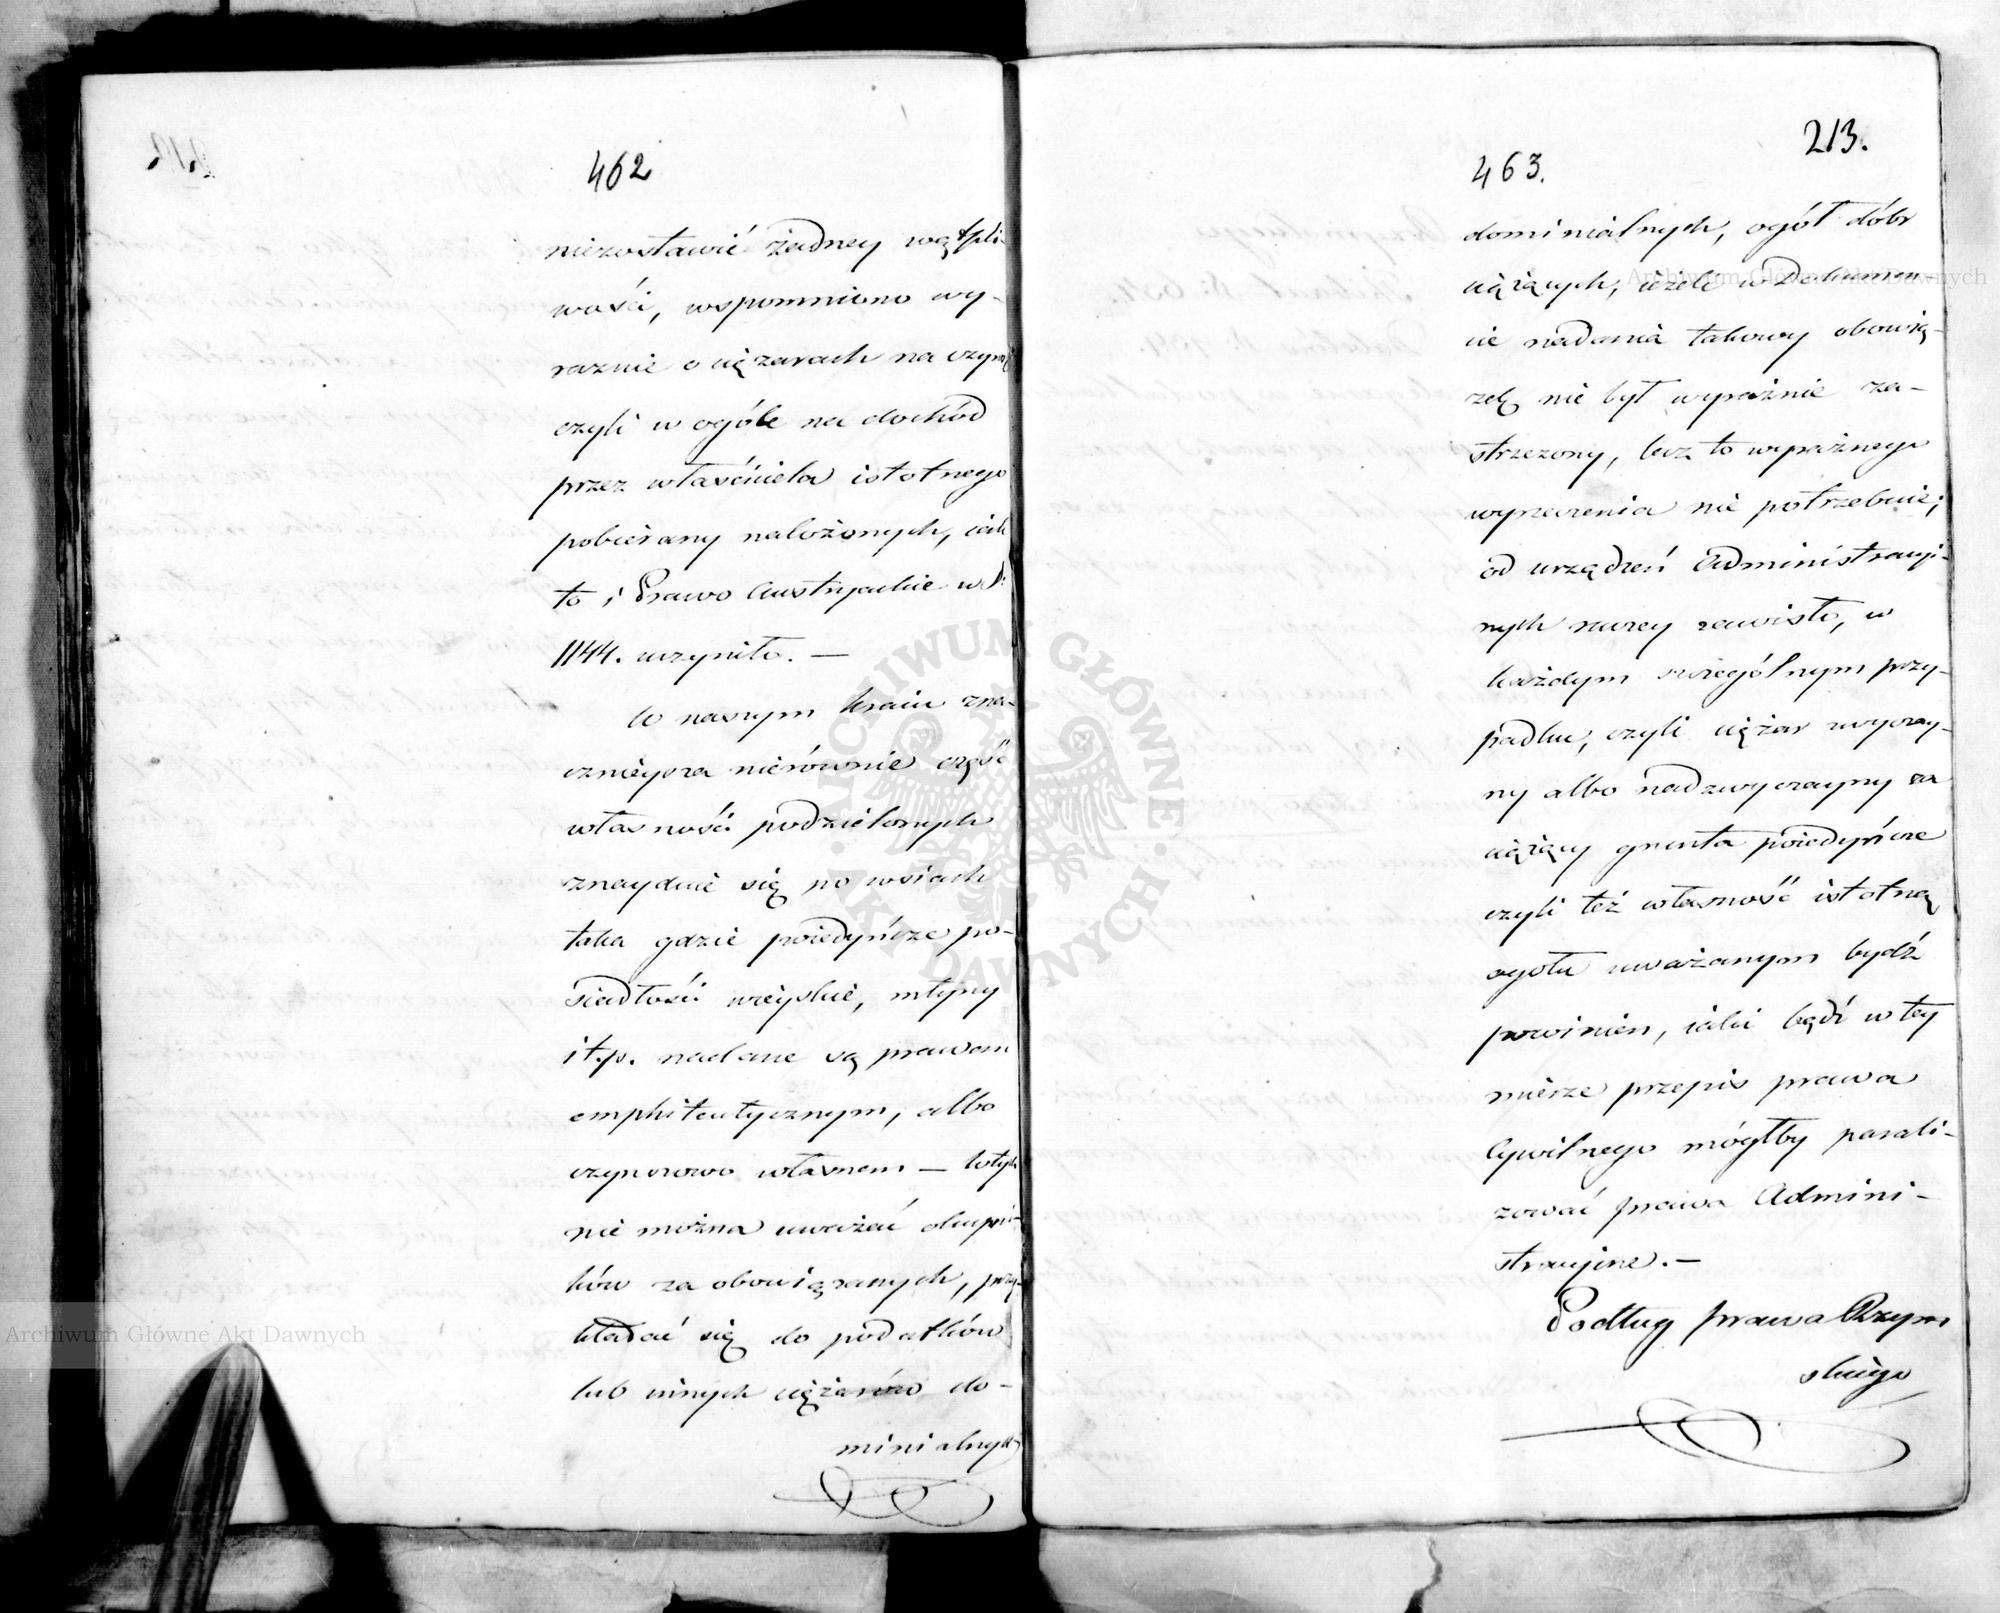 462
niezostawić żadney wątpli-
wości, wspomniono wy-
raznie o ciężarach na czynsz
czyli w ogóle na dochód
przez właściciela istotnego
pobierany nałożonych, iak
to i Prawo Austryackie w §:
1144. uczyniło. —
W naszym kraiu zna-
cznieysza nierównie część
własności podzielonych
znayduie się po wsiach
taka gdzie poiedyńcze po-
siadłości wieyskie, młyny
i t.p. nadane są prawem
emphiteutycznym, albo
czynszowo własnem — tutych
nie można uważać okupni-
ków za obowiązanych, przy-
kładać się do podatków
lub innych ciężarów do-
minialnych
213.
463.
dominialnych, ogół dóbr
ciążących, ieżeli w Dokumen
cie nadania takowy obowią-
zek nie był wyraźnie za-
strzeżony, lecz to wyraźnego
wyrzeczenia nie potrzebuie;
od urządzeń Administracyi-
nych raczey zawisło, w
każdym szczególnym przy-
padku, czyli ciężar zwyczay-
ny albo nadzwyczayny za
ciążący grunta poiedyńcze
czyli też własność istotną
ogółu uważanym bydź
powinien, iaki bądź w tey
mierze przepis prawa
Cywilnego mógłby parali-
zować prawa Admini-
stracyine. —
Podług prawa Rzym
skiego
Archiwum Główne Akt Dawnych
Archiwum Główne Akt Dawnych
ARCHIWUM GŁÓWNE · AKT DAWNYCH ·